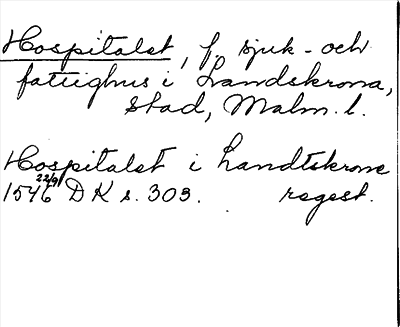 Hospitalet, f. sjuk- och
fattighus i Landskrona,
stad, Malm. l.
Hospitalet i Landtskrone
1546 22/9 DK s. 303. regest.